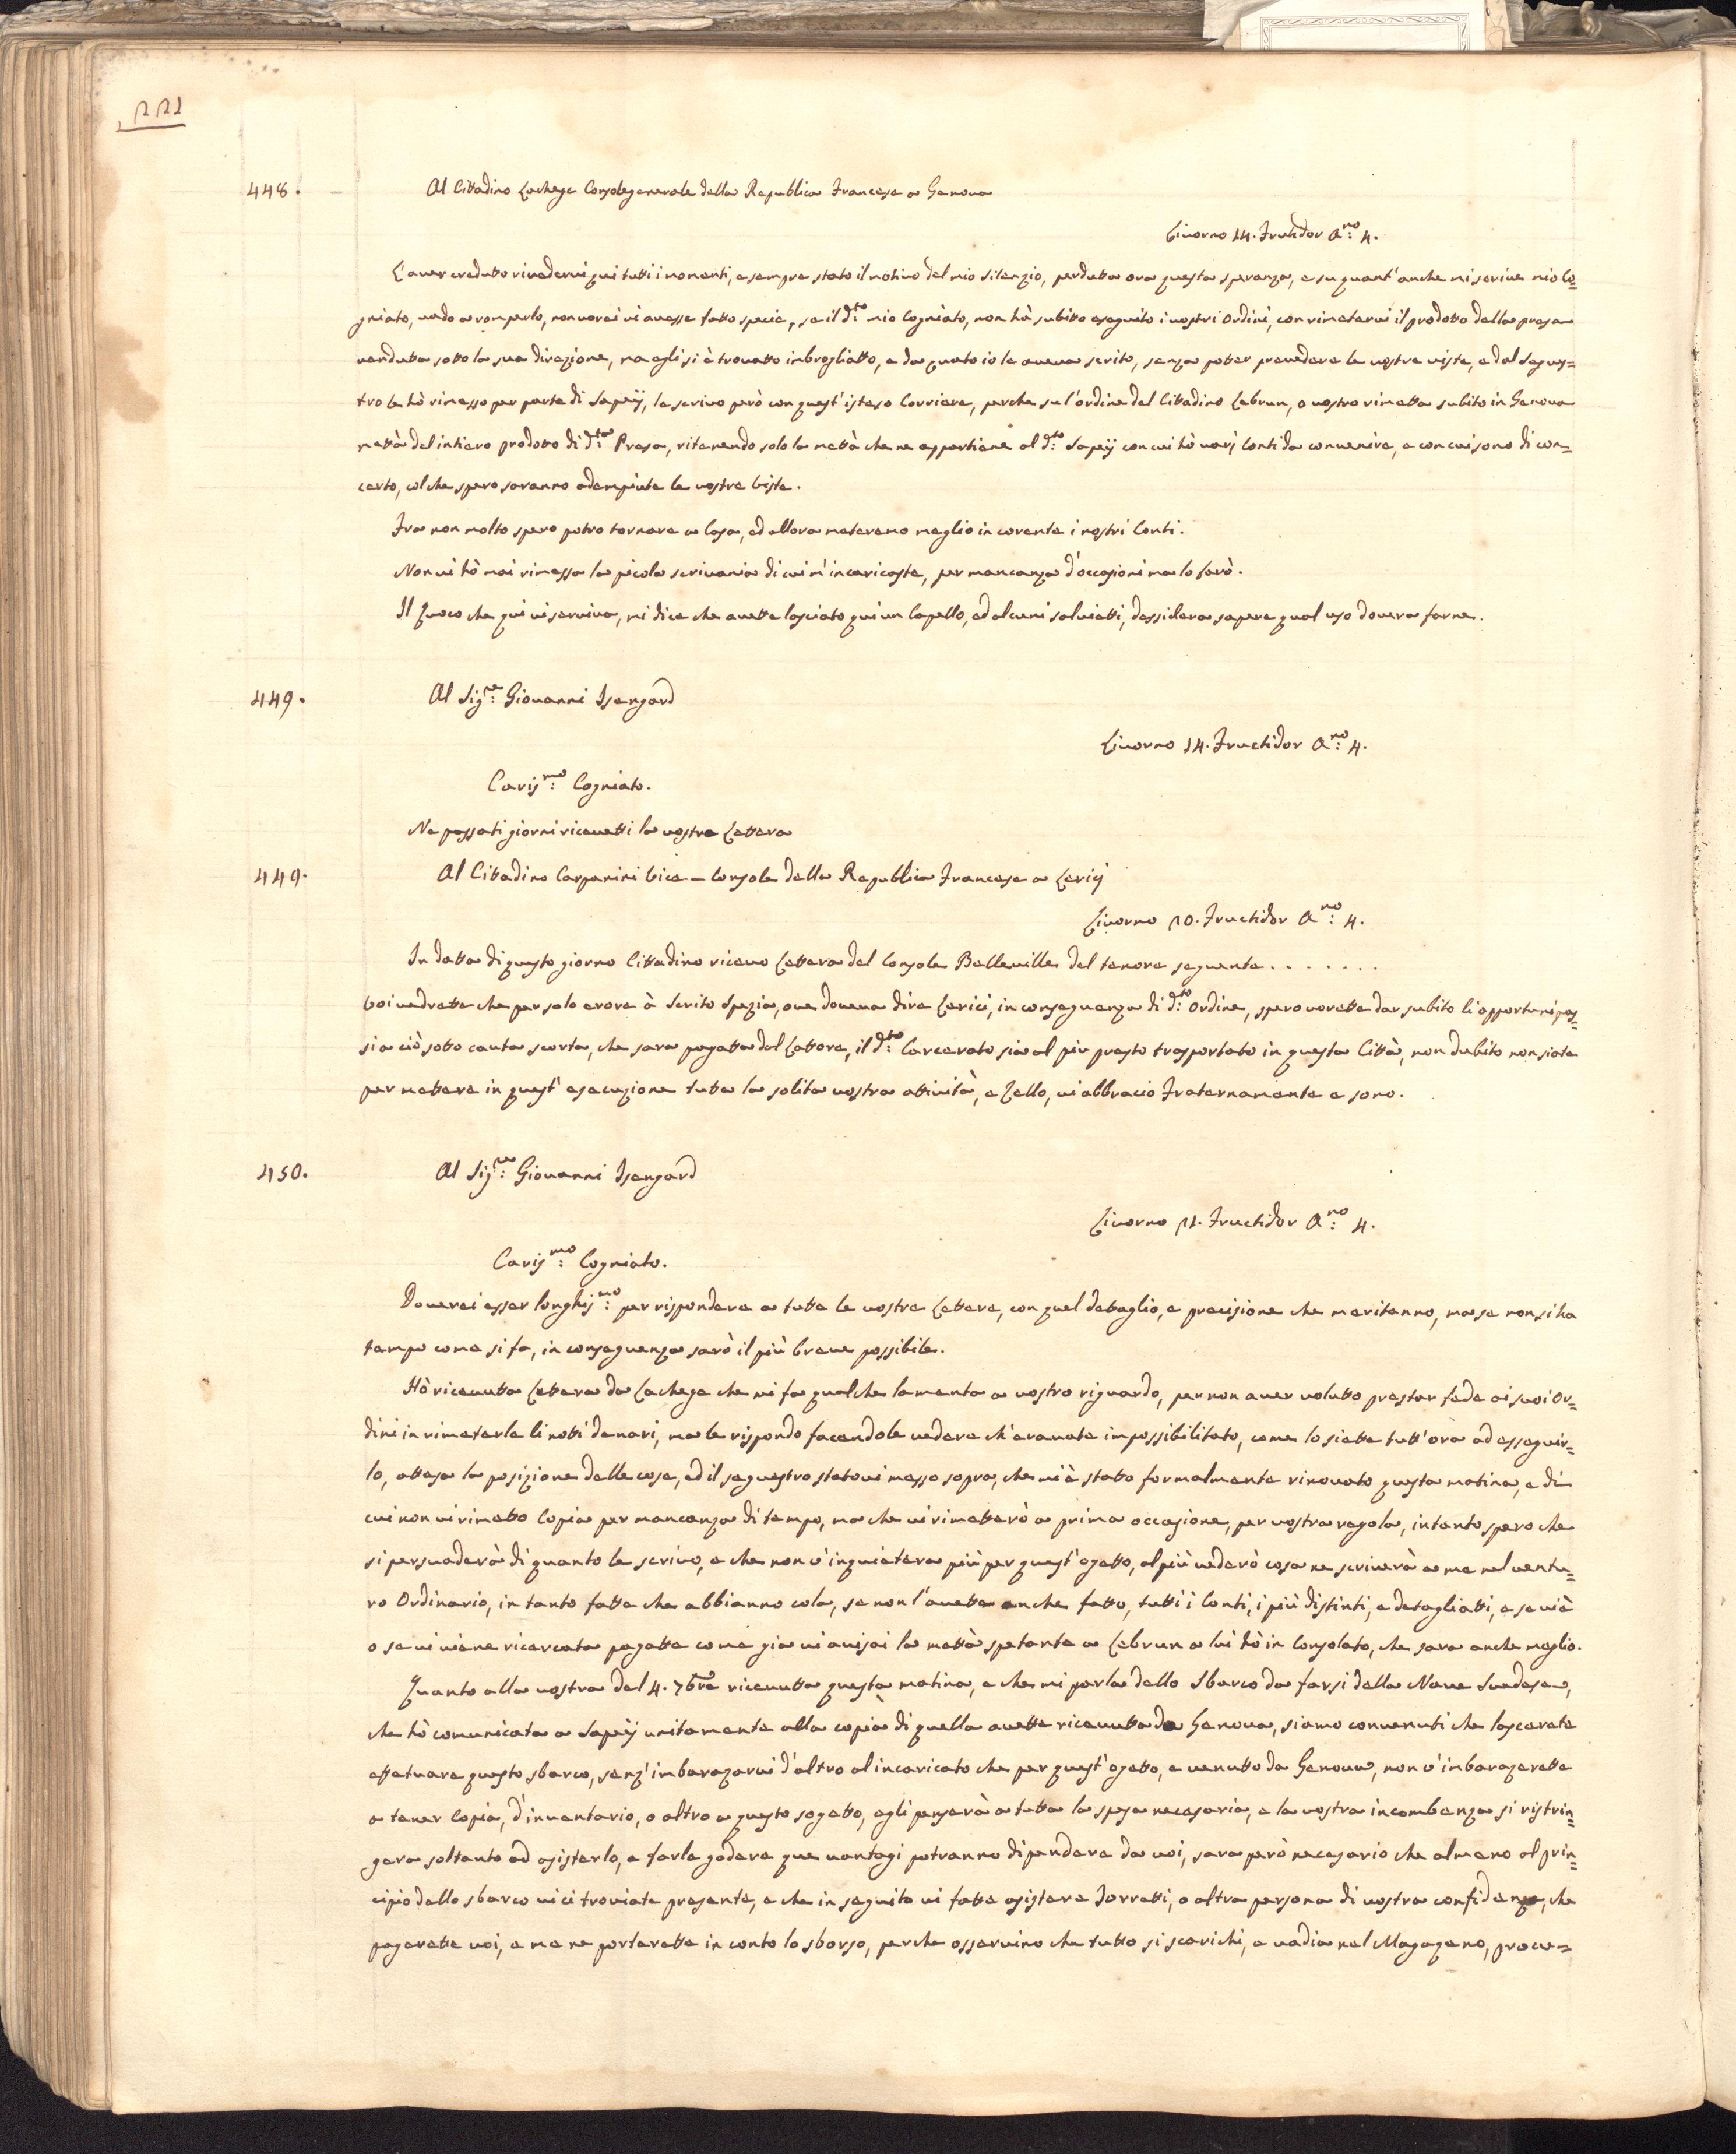 221
448. Al Cittadino Lachege Consolegenerale della Republica Francese a Genova
Livorno 14. Frutidor A.no 4.
L'aver creduto rivedervi qui tutti i momenti, e sempre stato il motivo del mio silenzio, perduta ora questa speranza, e su quant'anche mi scrive mio Co=
gniato, vado a romperlo, non vorei vi avesse fatto specie, se il d.to mio Cogniato, non hà subito eseguito i vostri Ordini, con rimetervi il prodotto della presa
venduta sotto la sua direzione, ma egli si è trovatto inbrogliatto, e da quato io le aveva scrito, senza potter prevedere le vostre viste, e dal seques=
tro le hò rimesso per parte di Sapeij, le scrivo però con quest'isteso Corriere, perche su l'ordine del Cittadino Lebrun, o vostro rimetta subito in Genova
mettà del intiero prodotto di d.ta Presa, ritenendo solo la mettà che ne appartiene al d.to Sapeij con cui hò varj Conti da convenire, e con cui sono di con=
certo, col che spero saranno adempiute le vostre viste.
Fra non molto spero potro tornare a Casa, ed allora meteremo meglio in corente i nostri Conti.
Non vi hò mai rimessa la picola scrivania di cui m'incaricaste, per mancanza d'occasioni ma lo farò.
Il Quoco che qui vi serviva, mi dice che avette lasciato qui un Capello, ed alcuni salviatti, dessidera sapere qual uso dovera farne.
449. Al Sig.re Giovanni Isengard
Livorno 14. Fructidor A.no 4.
Caris.mo Cogniato.
Ne passati giorni ricevetti la vostra Lettera
449. Al Cittadino Carpanini Vice-Console della Republica Francese a Lerici
Livorno 20. Fructidor A.no 4.
In datta di questo giorno Cittadino ricevo Lettera del Console Belleville del tenore seguente . . . . . . .
Voi vedrette che per solo erore à scrito Spezia, ove doveva dire Lerici, in conseguenza di d.to Ordine, spero vorette dar subito li opportuni pas=
si a ciò sotto cauta scorta, che sara pagatta dal Lattore, il d.to Carcerato sia al più presto trasportato in questa Città, non dubito non siate
per mettere in quest'esecuzione tutta la solita vostra attività, e Zello, vi abbracio Fraternamente e sono.
450. Al Sig.re Giovanni Isengard
Livorno 21. Fructidor A.no 4.
Caris.mo Cogniato.
Doverei esser longhis.mo per rispondere a tutte le vostre Lettere, con quel detaglio, e precisione che meritanno, ma se non si ha
tempo come si fa, in conseguenza sarò il più breve possibile.
Hò ricevutta Lettera da Lachege che mi fa qualche lamenta a vostro riguardo, per non aver volutto prestar fede ai suoi Or=
dini in rimeterle li notti denari, ma le rispondo facendole vedere ch'eravate impossibilitato, come lo siette tutt'ora ad esseguir=
lo, attesa la posizione delle cose, ed il sequestro statovi messo sopra, che mi è statto formalmente rinovato questa matina, e di
cui non vi rimetto Copia per mancanza di tempo, ma che vi rimetterò a prima occasione, per vostra regola, intanto spero che
si persuaderà di quanto le scrivo, e che non v'inquietera più per quest'ogetto, al più vederò cosa ne scriverà a me nel ventu=
ro Ordinario, in tanto fatte che abbianno cola, se non l'avette anche fatto, tutti i Conti, i più distinti, e detagliatti, e se viè
o se vi viene ricercata pagatte come gia vi avisai la mettà spetante a Lebrun a lui hò in Consolato, che sara anche meglio.
Quanto alla vostra del 4. 7bre ricevutta questa matina, e che mi parla dello Sbarco da farsi della Nave Suedese,
che hò comunicata a Sapeij unitamente alla copia di quella avette ricevutta da Genova, siamo convenuti che lascerete
effetuare questo sbarco, senz'imbarazarvi d'altro al incaricato che per quest'ogetto, e venutto da Genova, non v'imbarazerette
a tener Copia, d'inventario, o altro a questo sogetto, egli penserà a tutta la spesa necesaria, e la vostra incombenza si ristrin=
gera soltanto ad asisterlo, e farle godere que vantagi potranno dipendere da voi, sara però necesario che almeno al prin=
cipio dello sbarco vi ci troviate presente, e che in seguito vi fatte asistere Torretti, o altra persona di vostra confidenza, che
pagarette voi, e me ne porterette in conto lo sborso, perche osservino che tutto si scarichi, e vadia nel Magazeno, procu=